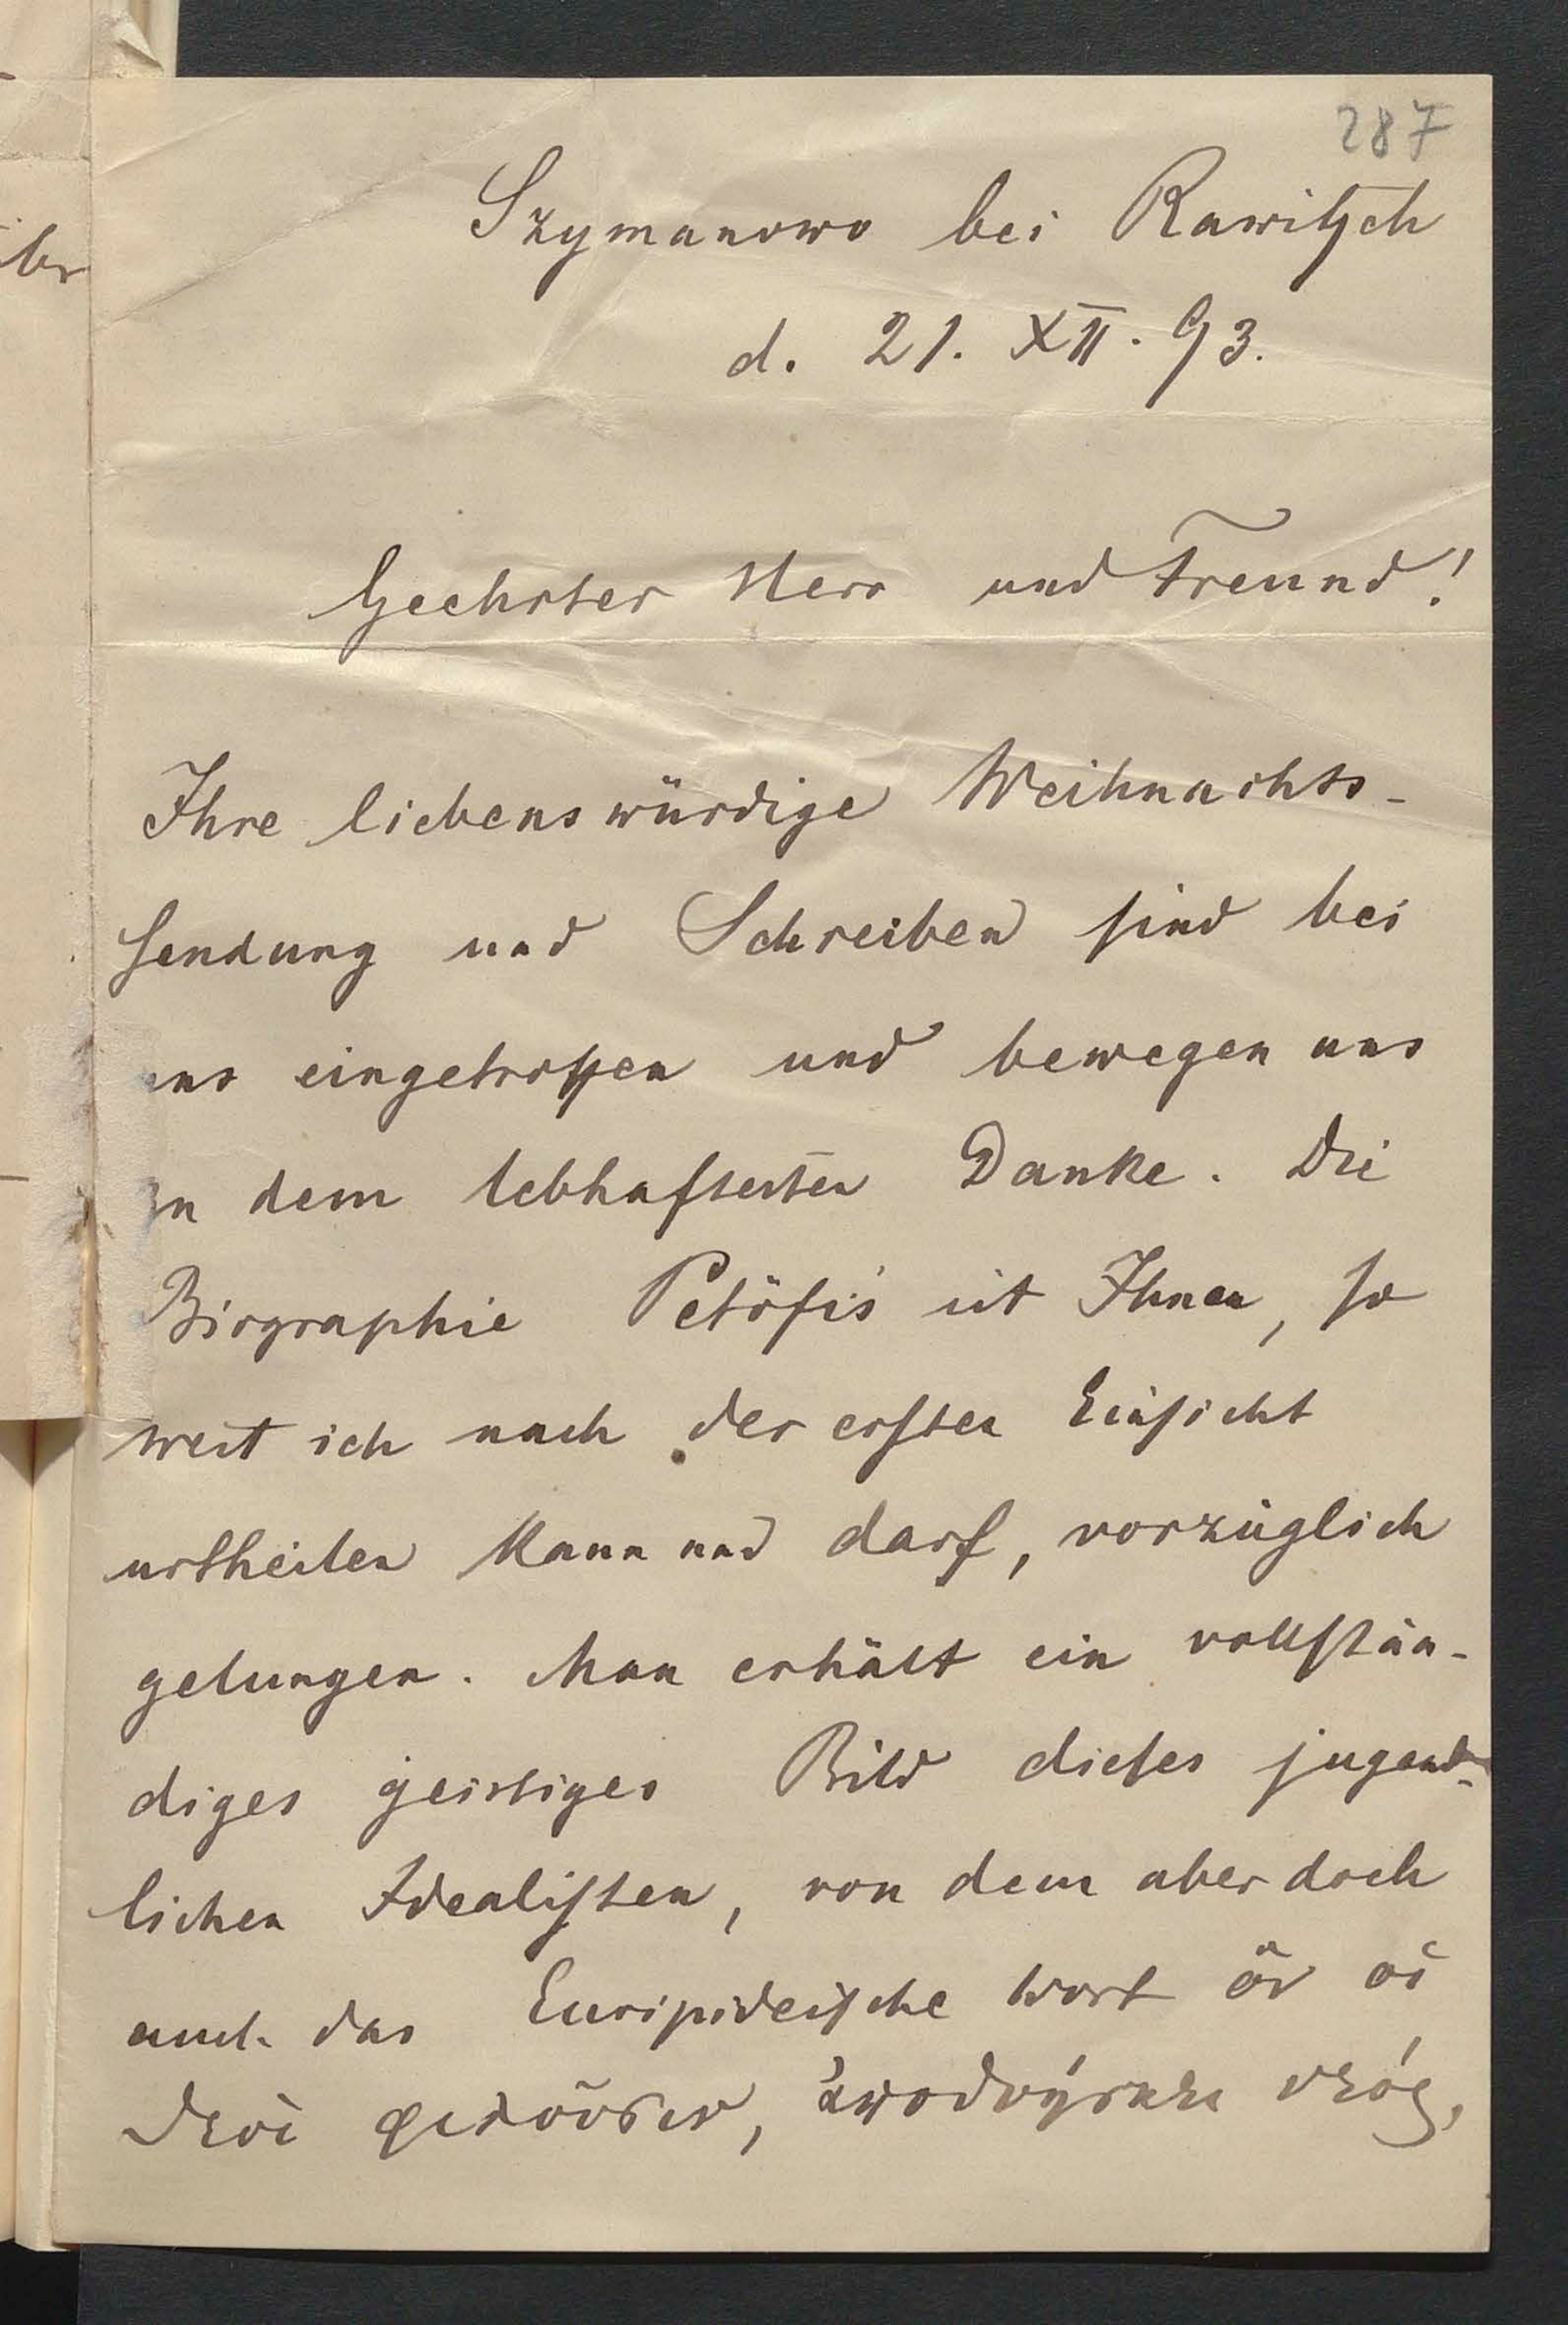 287
Szymanowo bei Rawitsch
d. 21. XII. 93.
Geehrter Herr und Freund!
Ihre liebenswürdige Weihnachts-
sendung und Schreiben sind bei
uns eingetroffen und bewegen uns
zu dem lebhaftesten Danke. Die
Biographie Petöfis ist Ihnen, so
weit ich nach der ersten Einsicht
urtheilen kann und darf, vorzüglich
gelungen. Man erhält ein vollstän-
diges geistiges Bild dieses jugend-
lichen Idealisten, von dem aber doch
auch das Euripideische Wort ὃν οἱ
θεοὶ φιλοῦσιν, ἀποθνήσκει νέος,